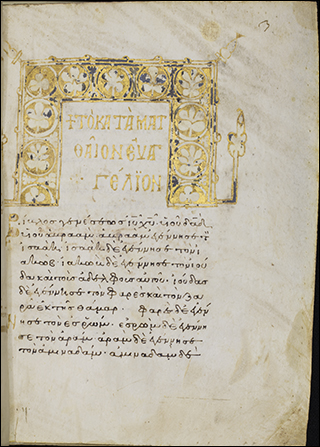 +ΤΟ ΚΑΤᾺ ΜΑΤ
ΘΑῖΟΝ ἘΥΑΓ
ΓΕΛΙΟΝ
Βίβλος γενέσεως ἰῡ χῡ υἱοῦ δᾱδ
υἱοῦ ἀβραάμ· ἀβραὰμ ἐγέννησε τὸν
ἰσαάκ· ἰσαὰκ δὲ ἐγέννησε τὸν ἰ
ακώβ· ἰακὼβ δὲ ἐγέννησε τὸν ἰού
δα καὶ τοὺς ἀδελφοὺς αὐτοῦ· ἰούδας
δὲ ἐγέννησε τὸν φαρὲς καὶ τὸν ζα
ρὰ ἐκ τῆς θάμαρ· φαρὲς δὲ ἐγέν
νησε τὸν ἐσρώμ· ἐσρὼμ δὲ ἐγέννη
σε τὸν ἀράμ· ἀρὰμ δὲ ἐγέννησε
τὸν ἀμιναδάμ· ἀμιναδὰμ δὲ